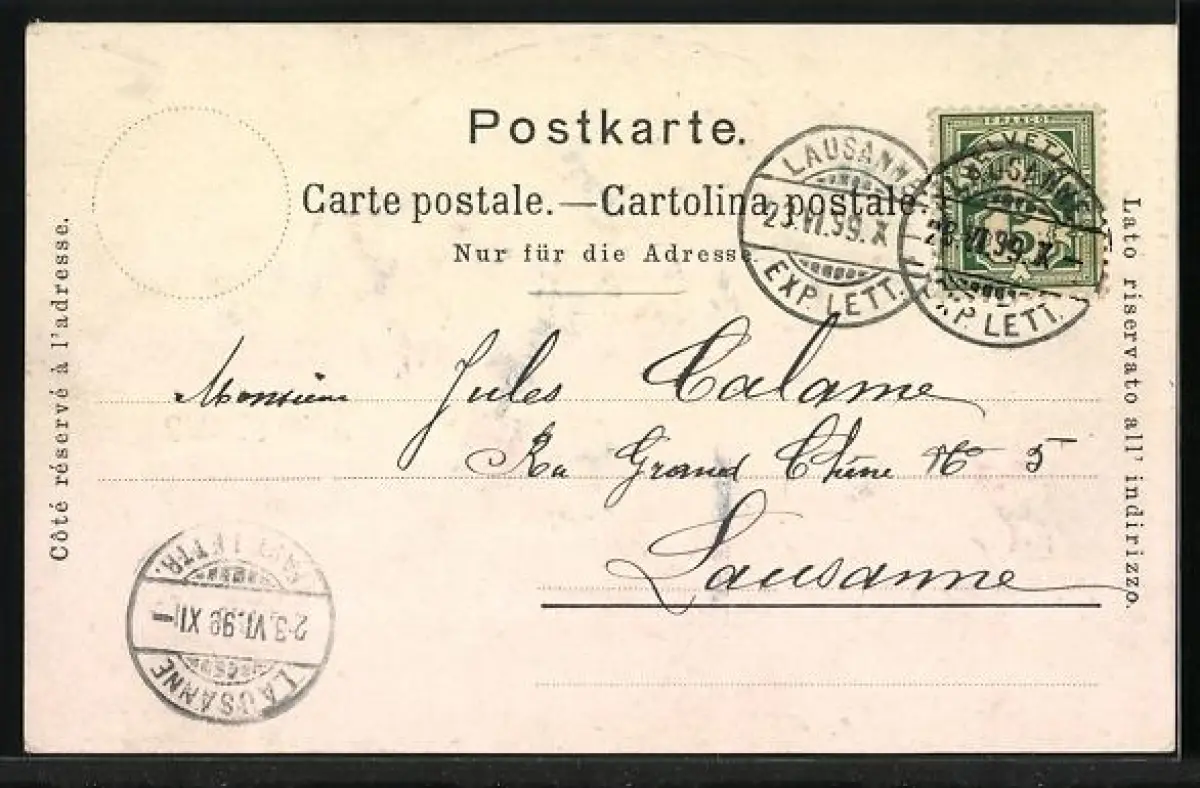 Postkarte.
Carte postale.—Cartolina postale
Nur für die Adresse.
Côté réservé à l'adresse.
Lato riservato all' indirizzo.
FRANCO
HELVETIA
LAUSANNE
23.VI.99.X
EXP. LETT.
LAUSANNE
23.VI.99.X–
EXP. LETT.
Monsieur Jules Calame
Grand Chêne No 5
Lausanne
LAUSANNE
23.VI.99 XI–
LETTR.